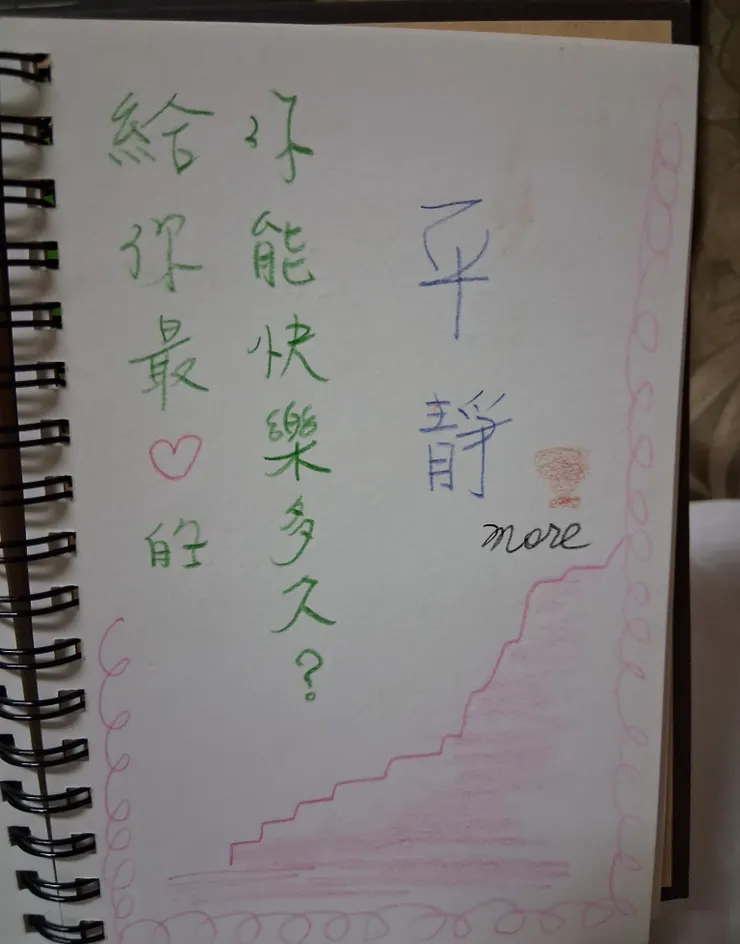 平靜
more
你能快樂多久？
給你最♡的